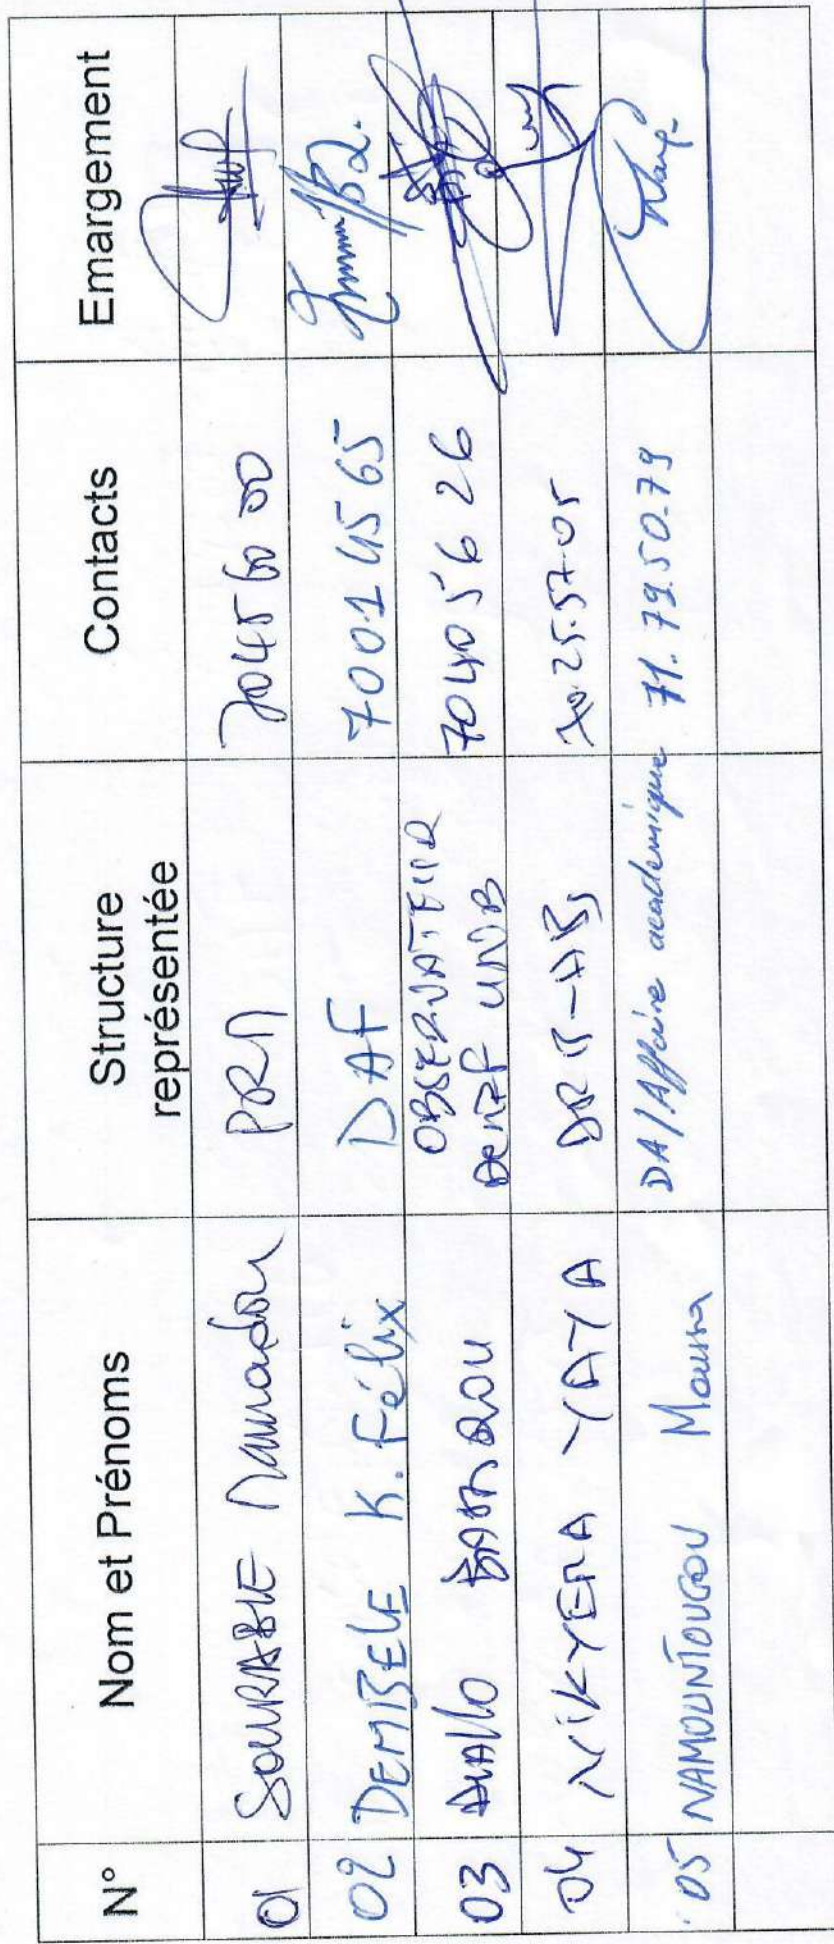 N° Nom et Prénoms Structure représentée Contacts Emargement
01 SOURABIE Mamadou PRM 70456000
02 DEMBELE K. Félix DAF 70014565
03 DIALLO OBSERVATEUR DCMEF UNB 70405626
04 NIKYEMA YAYA 70.25.57.05
05 NAMOUNTOUGOU Moussa DA/Affaire académique 71.79.50.79